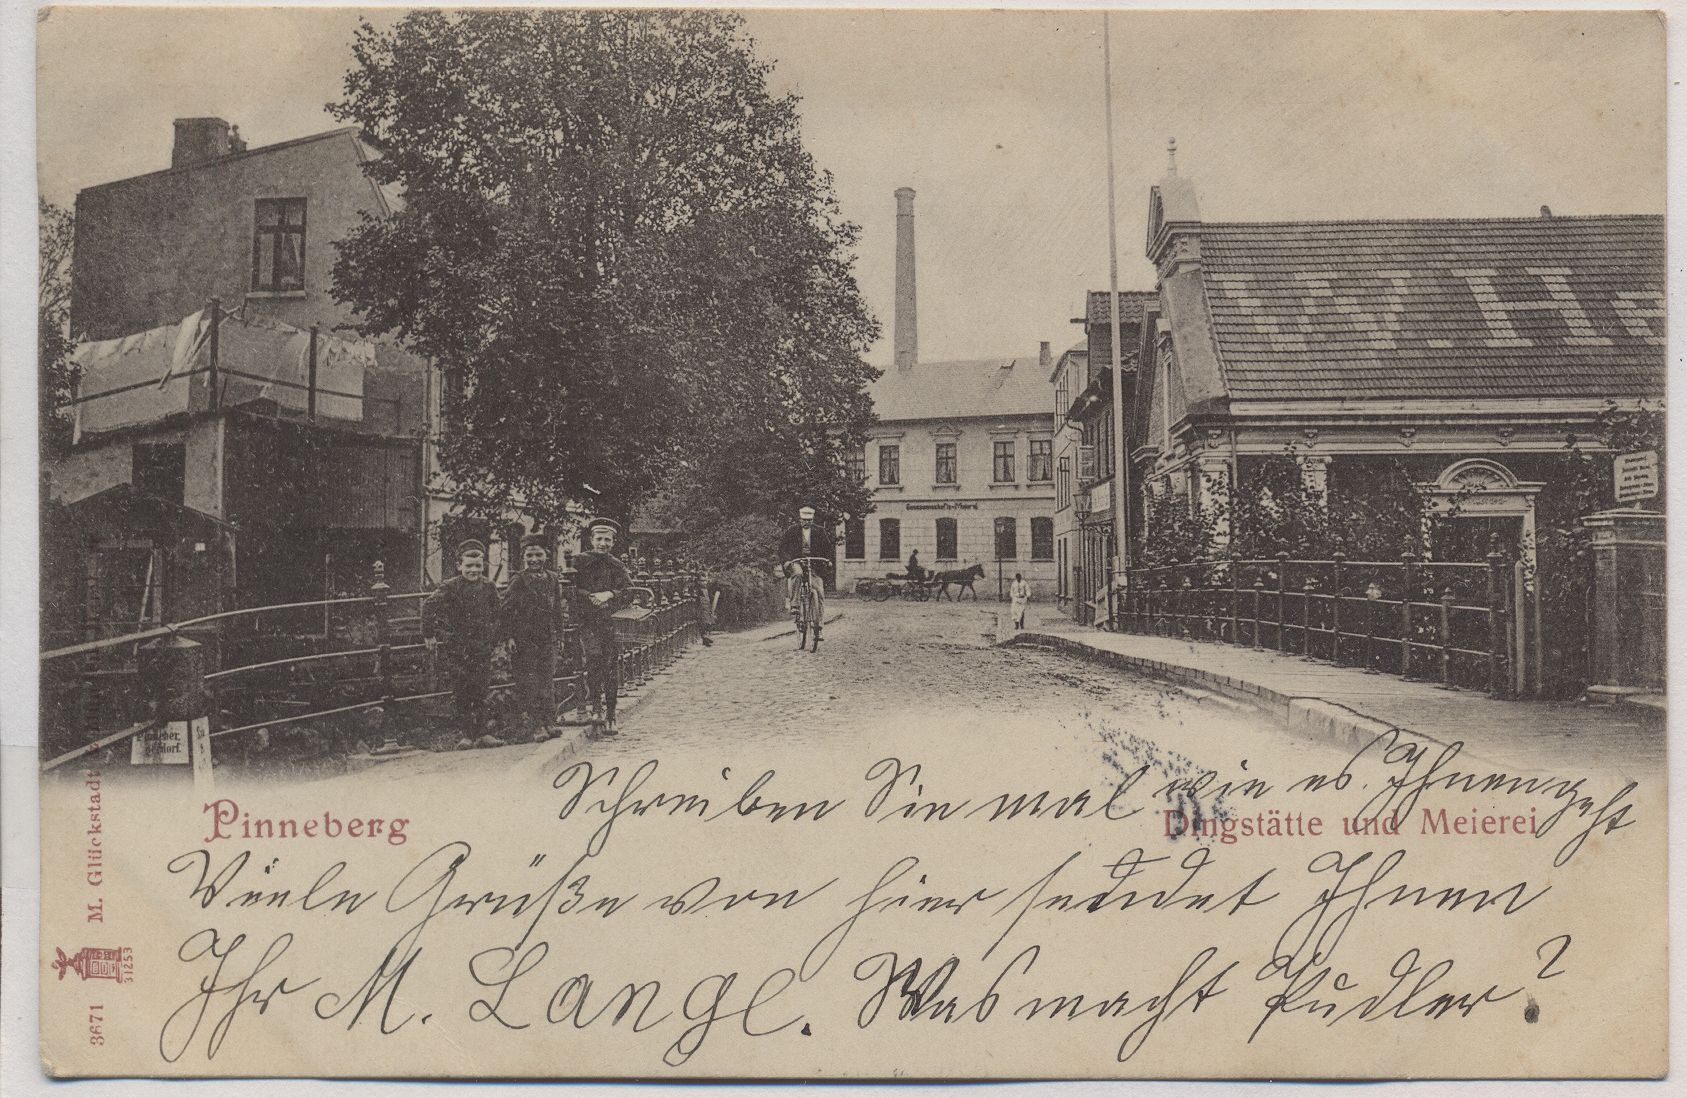 Genossenschafts-Meierei
Schreiben Sie mal wie es Ihnen geht
Pinneberg
Dingstätte und Meierei
Viele Grüße von hier sendet Ihnen
Ihr M. Lange. Was macht Pudler?
M. Glückstadt
31253
3671